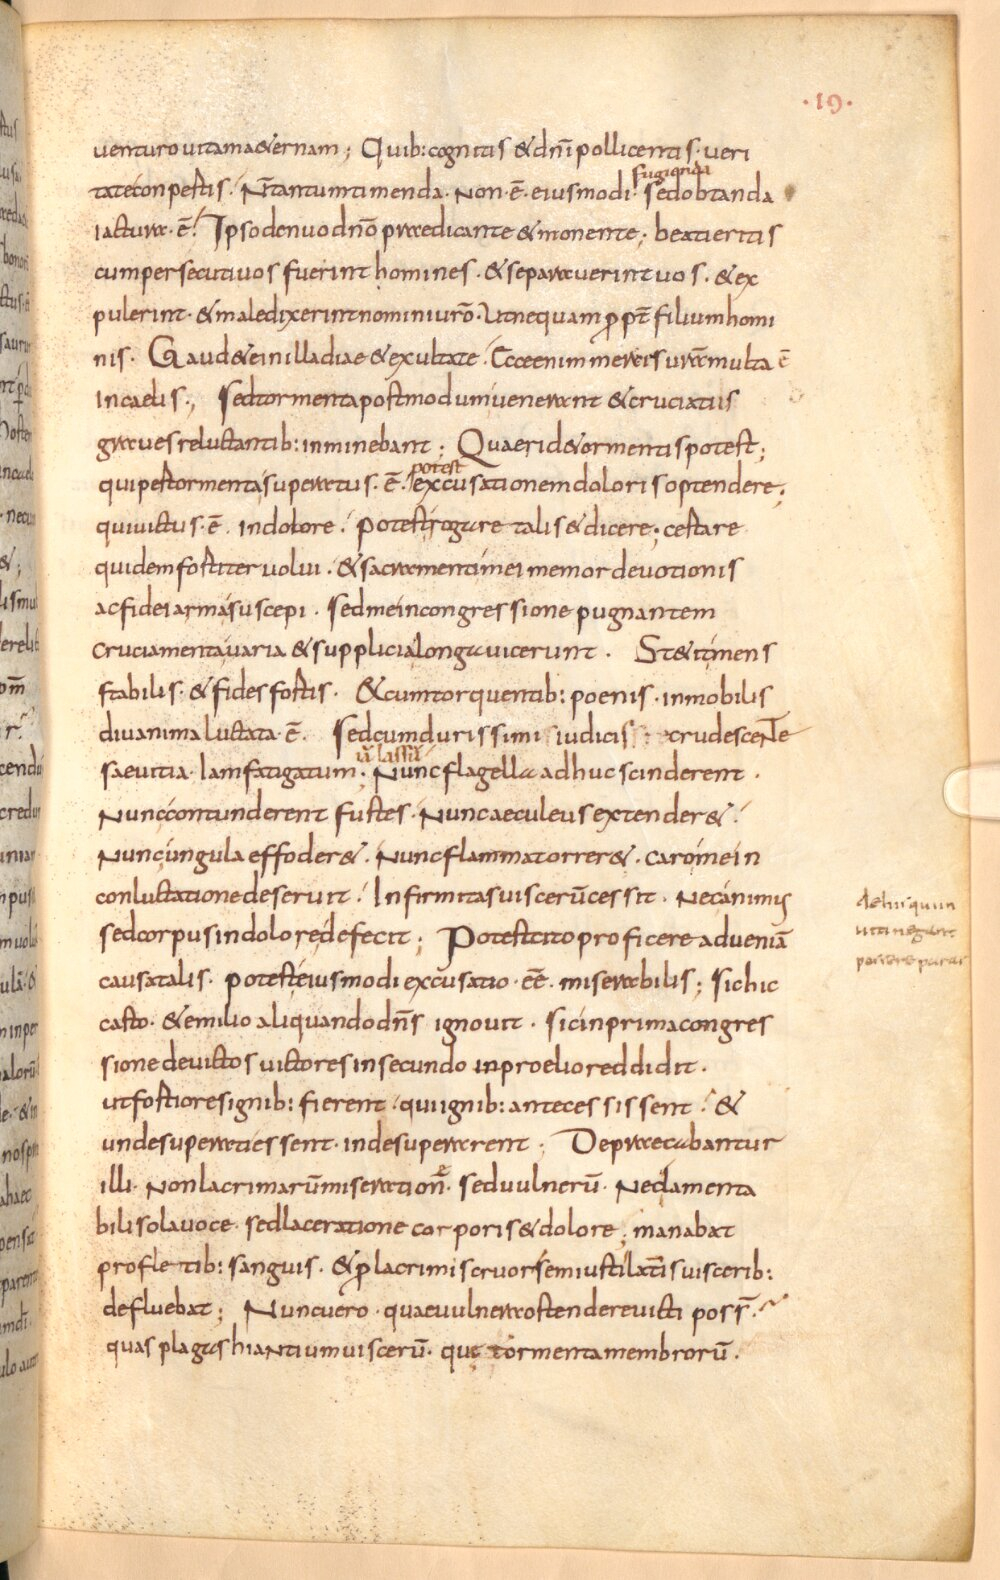 ·19·
venturo vitam aeternam; Quib: cognitis & dn̄i pollicentis· veri
tate conpertis· N̄ tantum timenda· non·ē· eiusmodi· sed obtanda
fugienda
iactura·ē· Ipso denuo dn̄o praedicante & monente; beati eritis
cum persecuti vos fuerint homines· & separaverint vos· & ex
pulerint· & maledixerint nomini vr̄o· ut nequam ꝓpt̄ filium homi
nis· Gaudete in illa die & exultate· Ecce enim merces vr̄a multa ē
in caelis; Sed tormenta postmodum venerant & cruciatus
graves reluctantib: inminebant; Quaeri de tormentis potest;
qui per tormenta superatus·ē· excusationem doloris optendere;
potest
qui victus·ē· in dolore· potest rogare talis & dicere; certare
quidem fortiter volui· & sacramenti mei memor devotionis
ac fidei arma suscepi· sed me in congressione pugnantem
cruciamenta varia & supplicia longa vicerunt· Stetit mens
stabilis· & fides fortis· & cum torquentib: poenis· inmobilis
diu anima luctata·ē· Sed cum durissimi iudicis recrudescente
saevitia· Iam fatigatum; Nunc flagella adhuc scinderent·
iā lassū
Nunc contunderent fustes· Nunc aeculeus extenderet·
Nunc ungula effoderet· Nunc flamma torreret· caro me in
conluctatione deseruit· Infirmitas viscerū cessit· Nec animus
sed corpus in dolore defecit; Potest cito proficere ad veniā
causa talis· potest eiusmodi excusatio·eē· miserabilis; Sic hic
casto· & emilio aliquando dn̄s ignovit· sic in prima congres
sione devictos victores in secundo in proelio reddidit·
ut fortiores ignib: fierent· qui ignib: ante cessissent· &
unde superati essent· inde superarent; Deprecabantur
illi· Non lacrimarū miseratione· sed vulnerū· Nec lamenta
bili sola voce· sed laceratione corporis & dolore; manabat
pro fletib: sanguis· & ꝓ lacrimis cruor semiustilatis viscerib:
defluebat; Nunc vero· quae vulnera ostendere victi poss̄·
quas plagas hiantium viscerū· que tormenta membrorū·